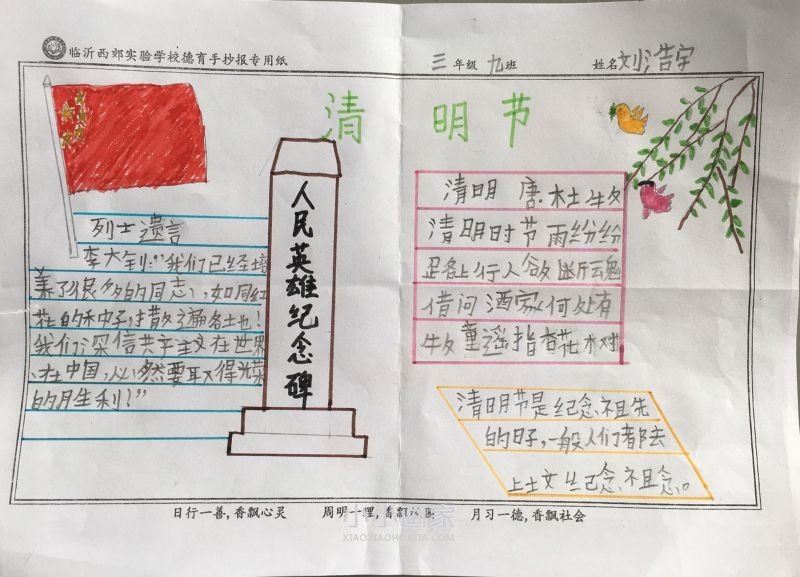 临沂西郊实验学校德育手抄报专用纸
三年级 九班
姓名 刘浩宇
清明节
烈士遗言
李大钊:“我们已经培
养了很多的同志,如同红
花的种子,撒遍各土也!
我们深信共产主义在世界
、在中国,必然要取得光荣
的胜利!”
人民英雄纪念碑
清明 唐.杜牧
清明时节雨纷纷
路上行人欲断魂
借问酒家何处有
牧童遥指杏花村
清明节是纪念祖先
的日子,一般人们都去
上土文纪念祖念。
日行一善,香飘心灵
周明一理,香飘
月习一德,香飘社会
小小画家
XIAOXIAOHUAJIA.COM